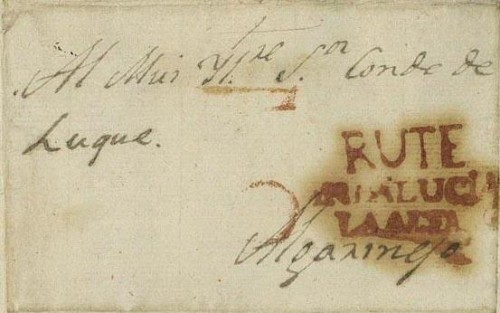 Al Mui Yl.re S.or Conde de
Luque.
RUTE
ANDALUCIA
LA ALTA
Algarinejo